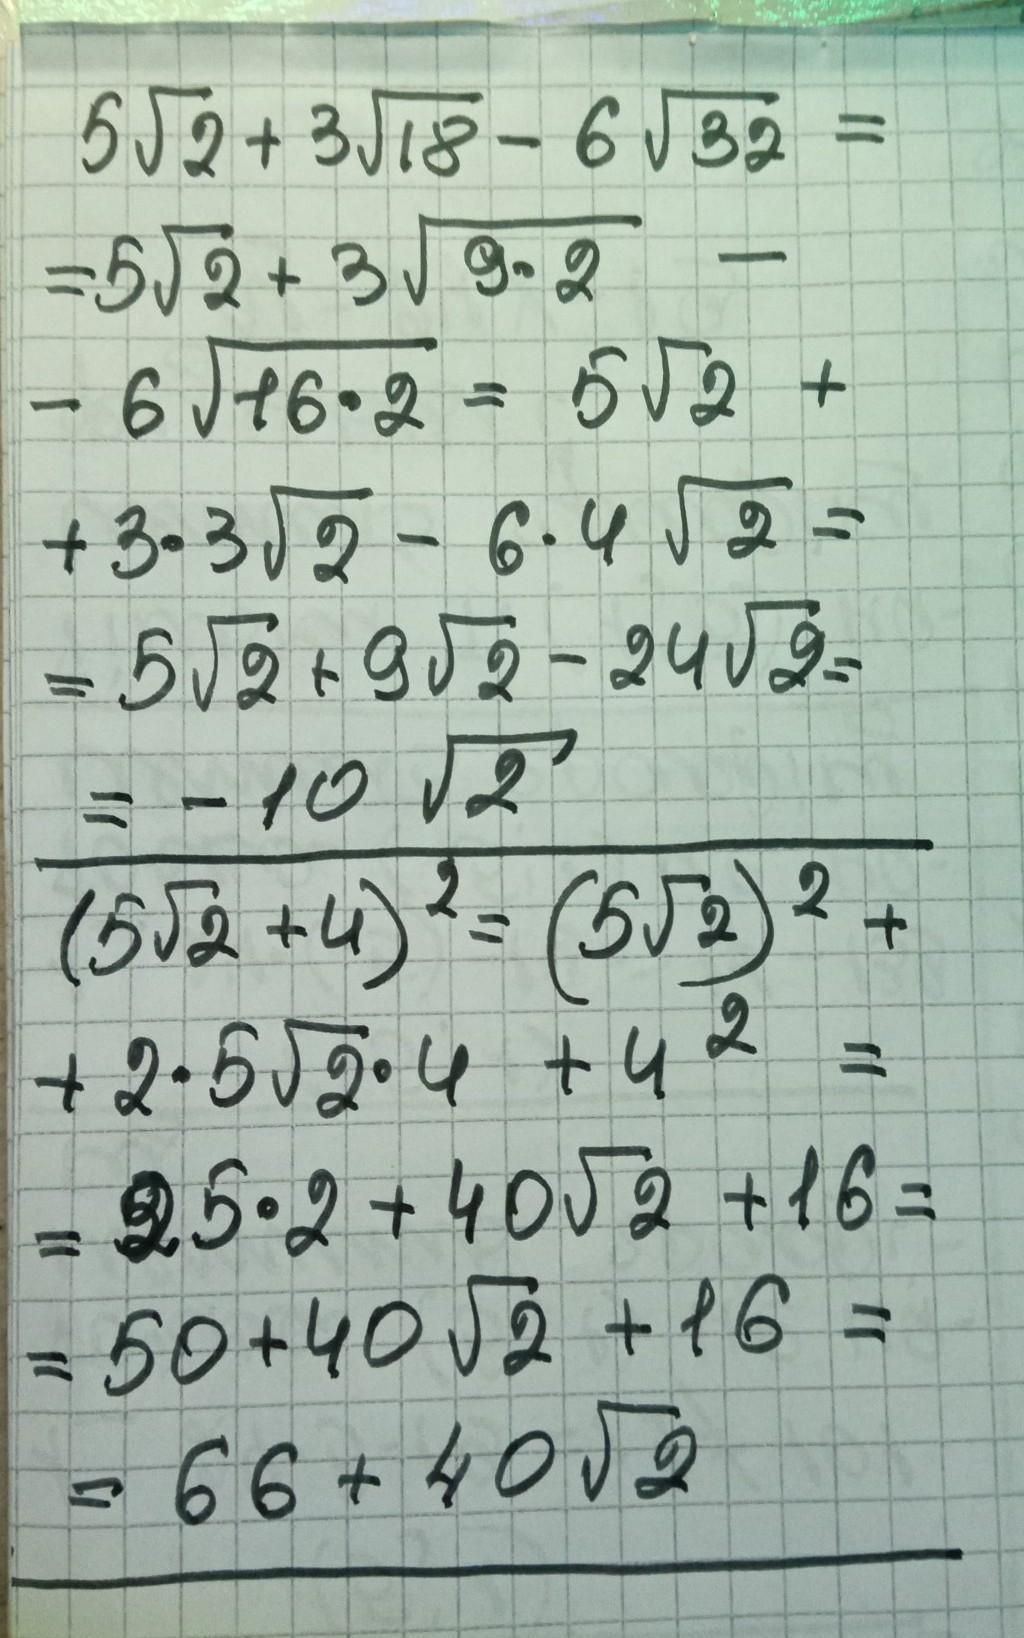 5√2 + 3√18 - 6√32 =
= 5√2 + 3√(9·2) -
- 6√(16·2) = 5√2 +
+ 3·3√2 - 6·4√2 =
= 5√2 + 9√2 - 24√2 =
= -10√2
(5√2 + 4)² = (5√2)² +
+ 2·5√2·4 + 4² =
= 25·2 + 40√2 + 16 =
= 50 + 40√2 + 16 =
= 66 + 40√2